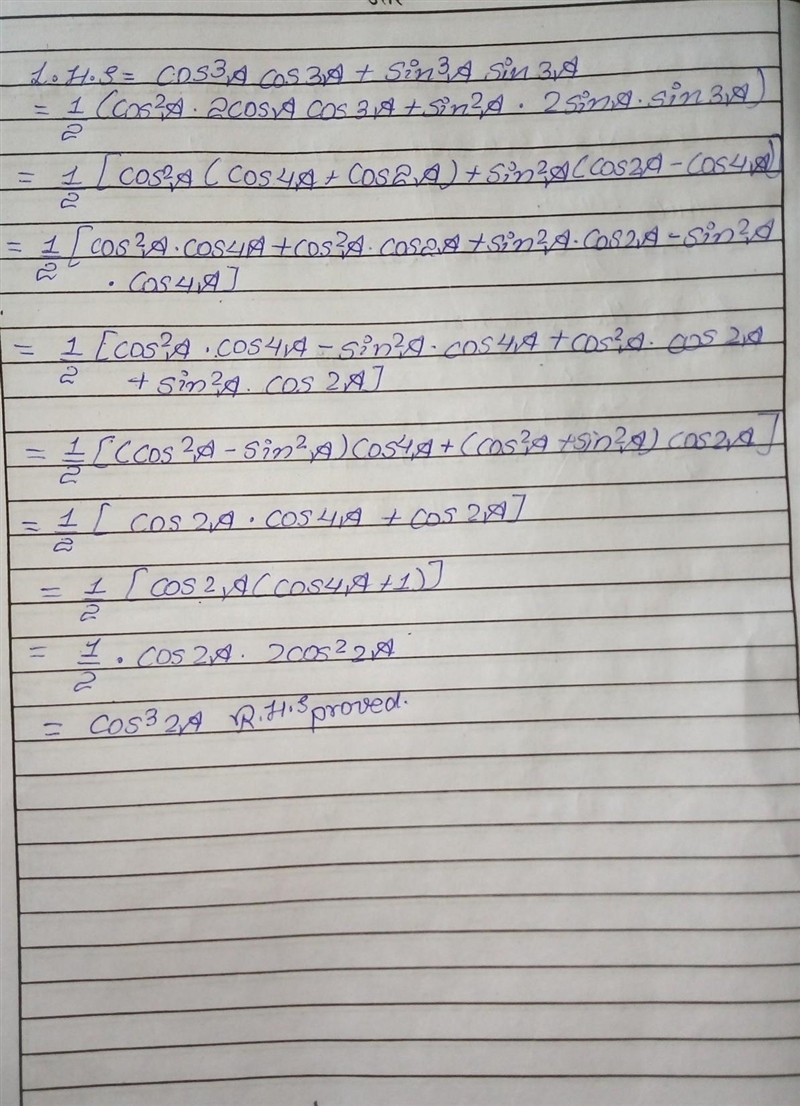 L.H.S = cos³A cos3A + sin³A sin3A
= 1/2 (cos²A · 2cosA cos3A + sin²A · 2sinA · sin3A)
= 1/2 [cos²A (cos4A + cos2A) + sin²A (cos2A - cos4A)]
= 1/2 [cos²A · cos4A + cos²A · cos2A + sin²A · cos2A - sin²A
· cos4A]
= 1/2 [cos²A · cos4A - sin²A · cos4A + cos²A · cos2A
+ sin²A · cos2A]
= 1/2 [(cos²A - sin²A) cos4A + (cos²A + sin²A) cos2A]
= 1/2 [cos2A · cos4A + cos2A]
= 1/2 [cos2A (cos4A + 1)]
= 1/2 · cos2A · 2cos²2A
= cos³2A R.H.S proved.